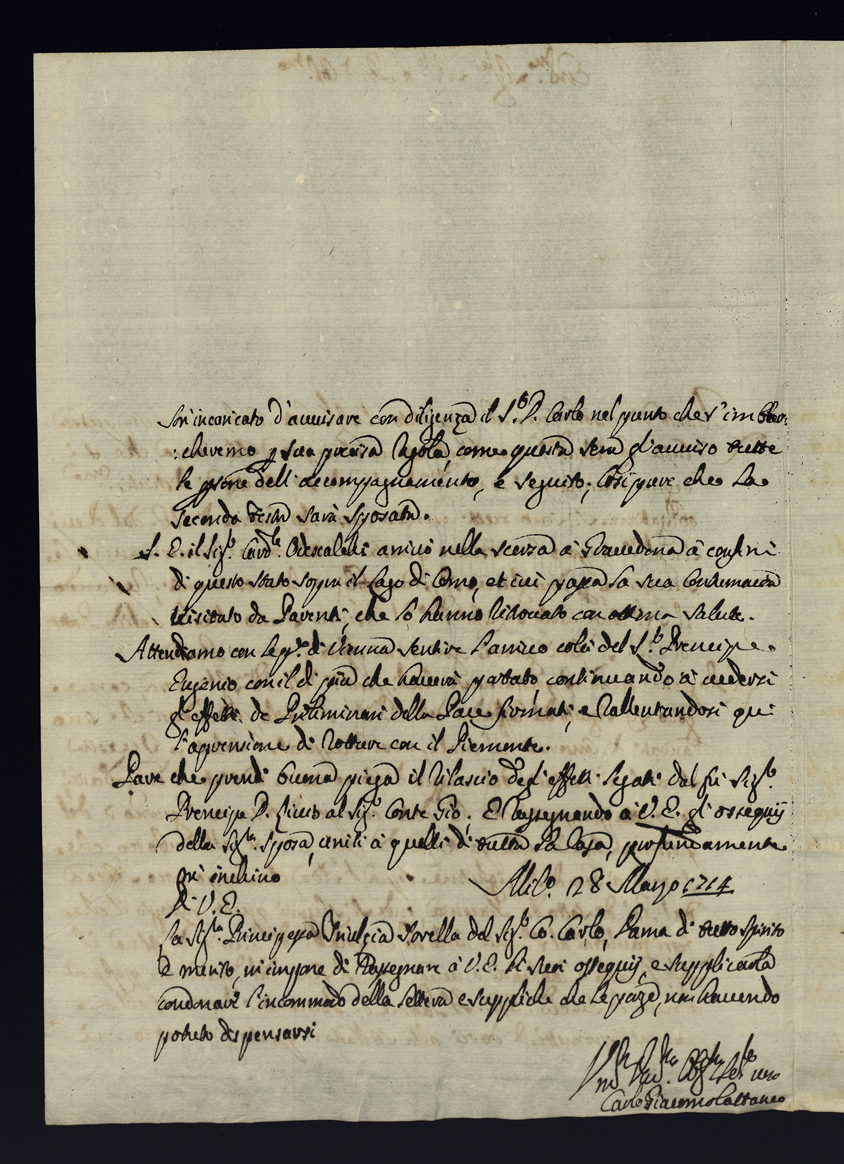 incaricato d'auuisare con diligenza il S.r D. Carlo nel punto che s'imbar:
:cheremo sua precisa regola, come questa sera gl'auuiso tutte
le psone dell'accompagnamento, e seguito; Così pure che la
seconda sarà sposata.
S. E. il Sig.r Card.le Odescalchi arriuò nella scorsa à Grauedona à confini
di questo Stato sopra il Lago di Como, et iui passa la sua Contumacia
uisitato da Parenti, che lo hanno ritrouato con ottima salute.
Attendiamo con le p.e di Vienna sentire l'arriuo colà del S.r Prencipe
Eugenio con il di più che hauerà portato continuando à uedersi
gl'effetti de Preliminari della Pace firmati, e rallentandosi qui
l'apprensione di rotture con il Piemonte.
Pare che prendi buona piega il rilascio degl'effetti legati dal fù Sig.r
Prencipe D. Liuio al Sig.r Conte Gio. E rassegnando à V. E. gl'ossequij
della Sig.ra Sposa, uniti à quelli di tutta la Casa, profundamente
m'inchino
Di V. E. Mil.o 28 Marzo 1714
La Sig.ra Principessa Triulzia Sorella del Sig.r Co. Carlo, Dama di tutto spirito
e merito, m'impone di rassegnare à V. E. li suoi ossequij, e supplicarla
condonare l'incommodo della lettera e suppliche che le porge, non hauendo
potuto dispensarsi
Carlo Giacomo Cattaneo